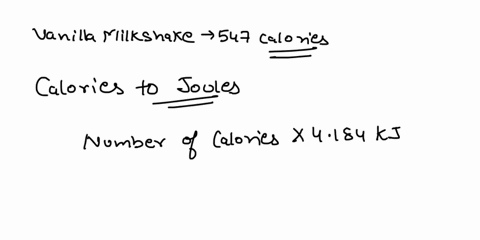 Vanilla Milkshake → 547 Calories
Calories to Joules
Number of Calories X 4.184 KJ